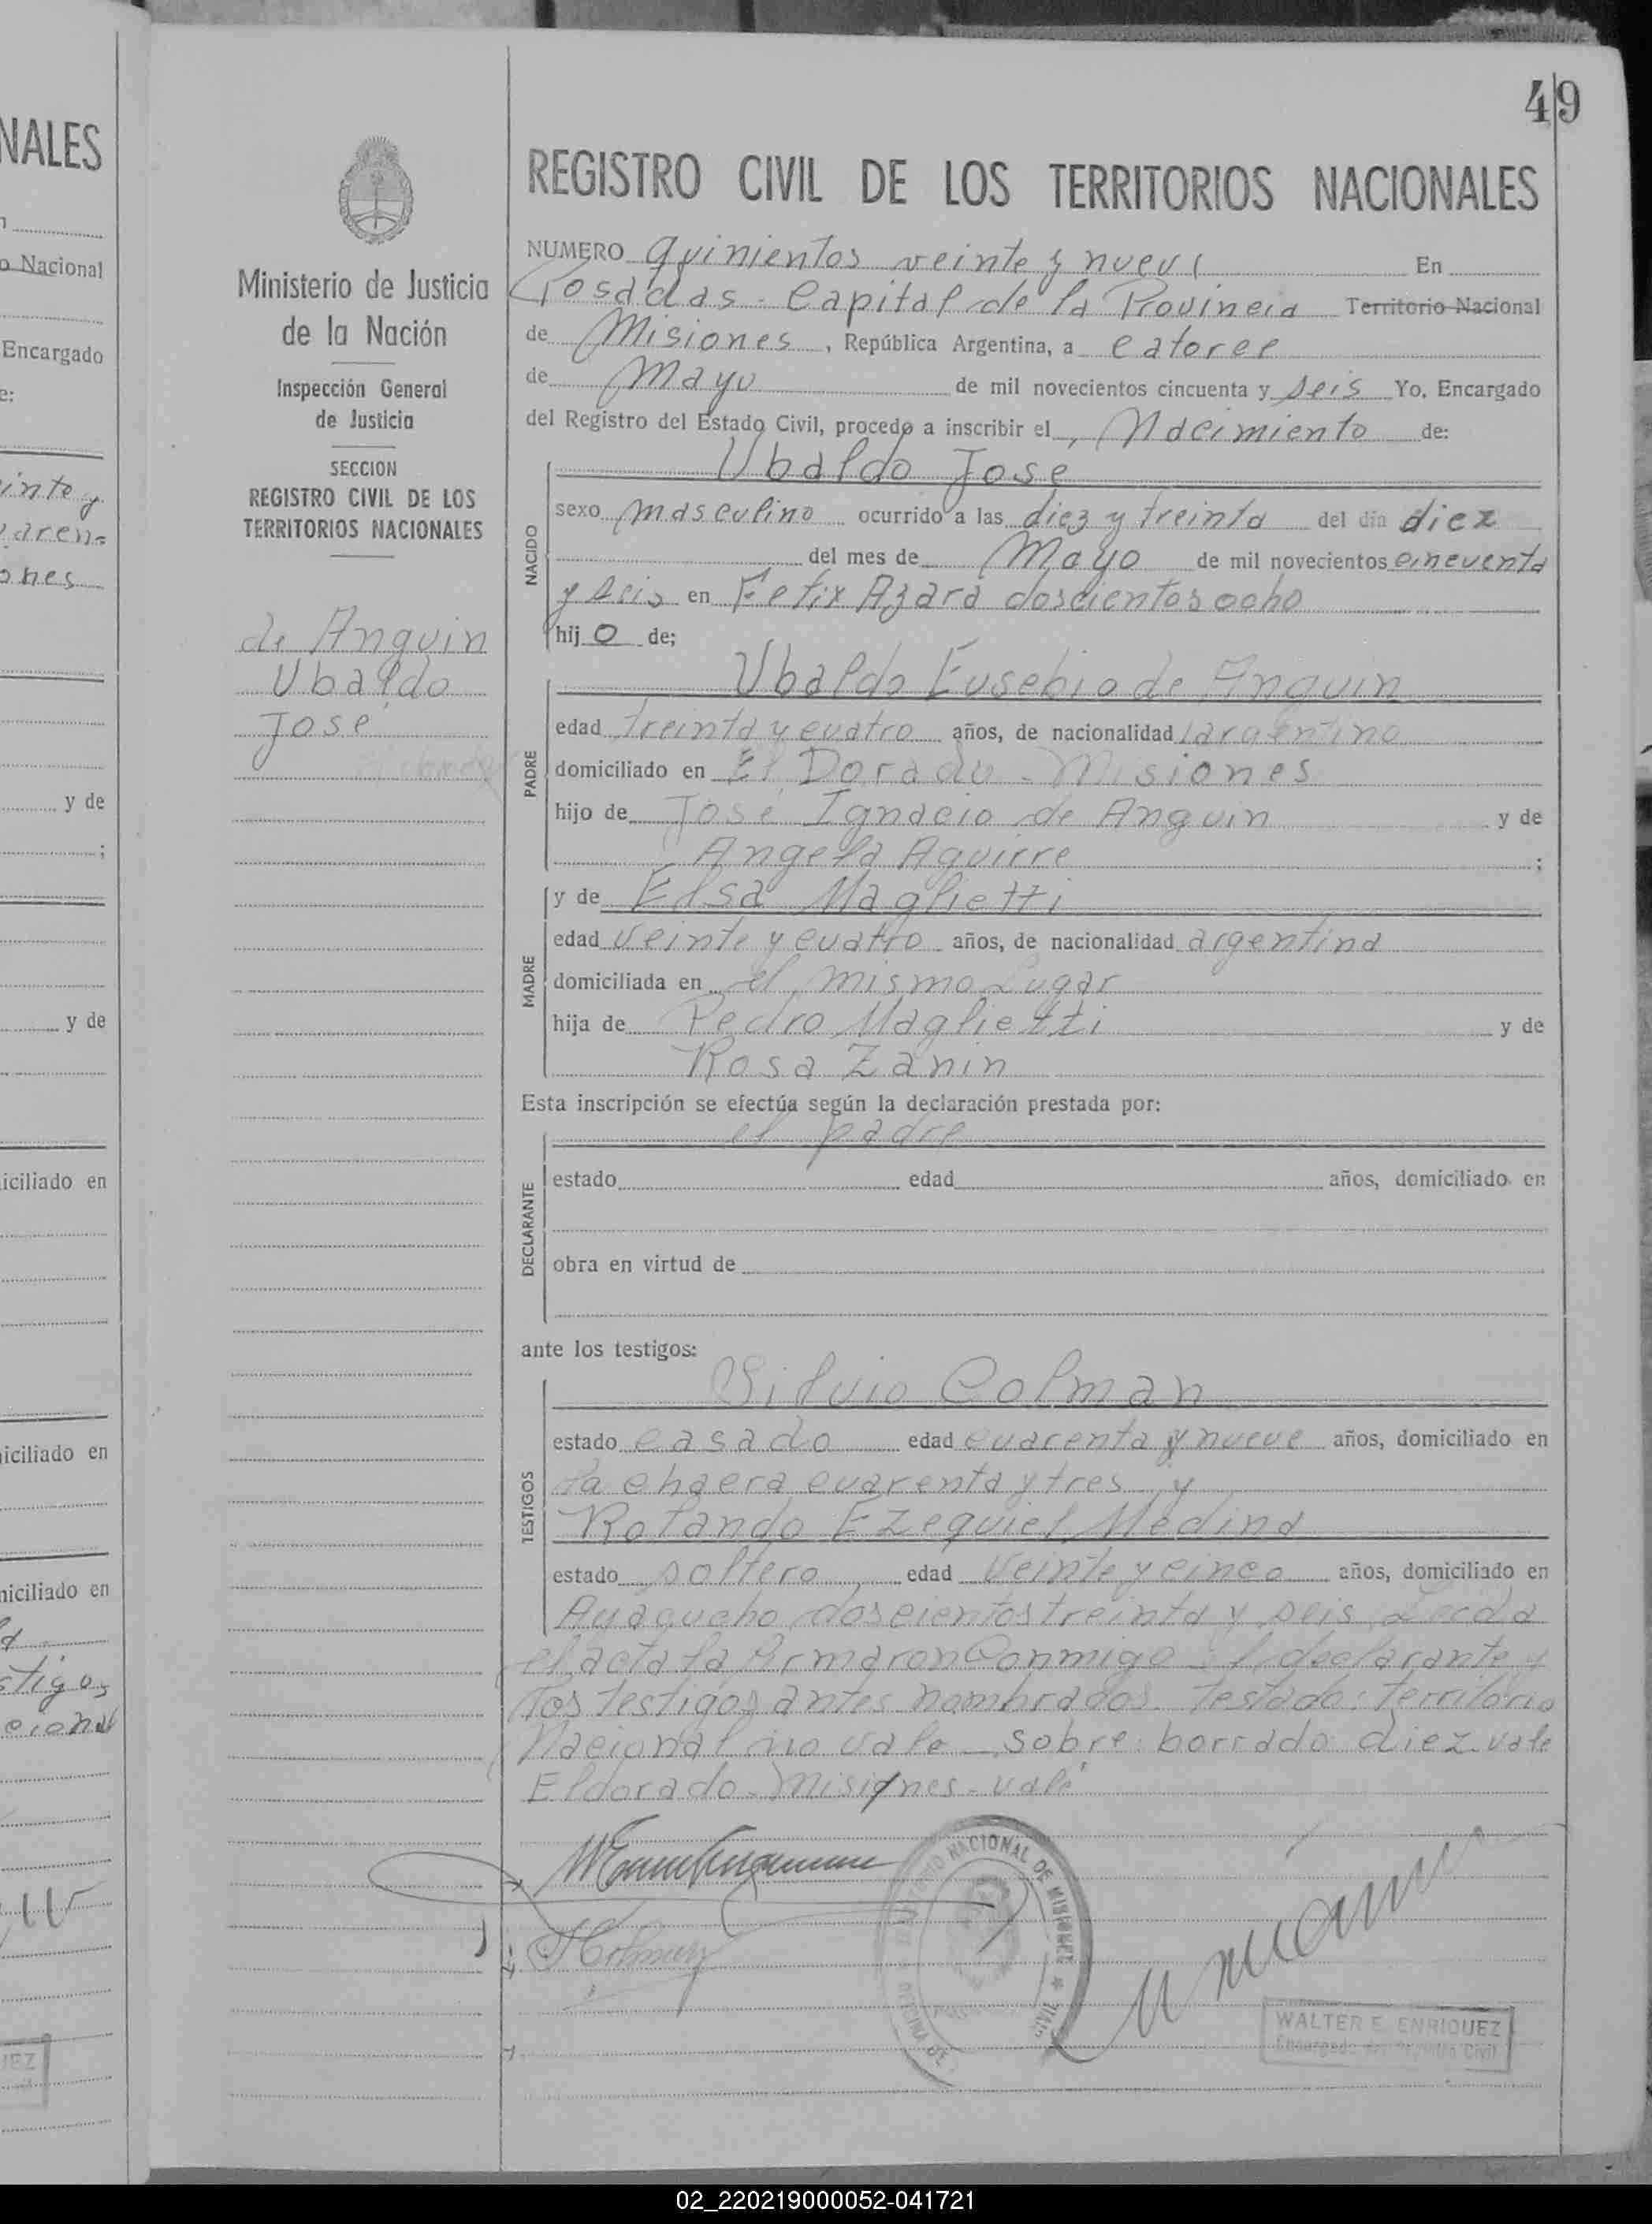 NALES
o Nacional
Encargado
e:
inte y
ones
y de
;
y de
iciliado en
iciliado en
niciliado en
stigos
49
REGISTRO CIVIL DE LOS TERRITORIOS NACIONALES
Ministerio de Justicia
de la Nación
Inspección General
de Justicia
SECCION
REGISTRO CIVIL DE LOS
TERRITORIOS NACIONALES
de Anguin
Ubaldo
José
NUMERO quinientos veinte y nueve En
Posadas - Capital de la Provincia Territorio Nacional
de Misiones, República Argentina, a catorce
de Mayo de mil novecientos cincuenta y seis Yo, Encargado
del Registro del Estado Civil, procedo a inscribir el Nacimiento de:
NACIDO
Ubaldo José
sexo masculino ocurrido a las diez y treinta del día diez
del mes de Mayo de mil novecientos cincuenta
y seis en Felix Azara doscientos ocho
hijo de;
PADRE
Ubaldo Eusebio de Anguin
edad treinta y cuatro años, de nacionalidad argentino
domiciliado en El Dorado - Misiones
hijo de José Ignacio de Anguin y de
Angela Aguirre ;
MADRE
y de Elsa Maglietti
edad veinte y cuatro años, de nacionalidad argentina
domiciliada en el mismo Lugar
hija de Pedro Maglietti y de
Rosa Zanin
Esta inscripción se efectúa según la declaración prestada por:
DECLARANTE
el padre
estado edad años, domiciliado en
obra en virtud de
ante los testigos:
TESTIGOS
Silvio Colman
estado casado edad cuarenta y nueve años, domiciliado en
la chacra cuarenta y tres y
Rolando Ezequiel Medina
estado soltero edad veinte y cinco años, domiciliado en
Ayacucho doscientos treinta y seis Leida
el acta la firmaron Conmigo el declarante y
los testigos antes nombrados. Testado: Territorio
Nacional no vale - sobre: borrado diez vale
Eldorado - Misiones - vale
NACIONAL DE MISIONES
OFICINA DE
WALTER E. ENRIQUEZ
Encargado del Registro Civil
02_220219000052-041721